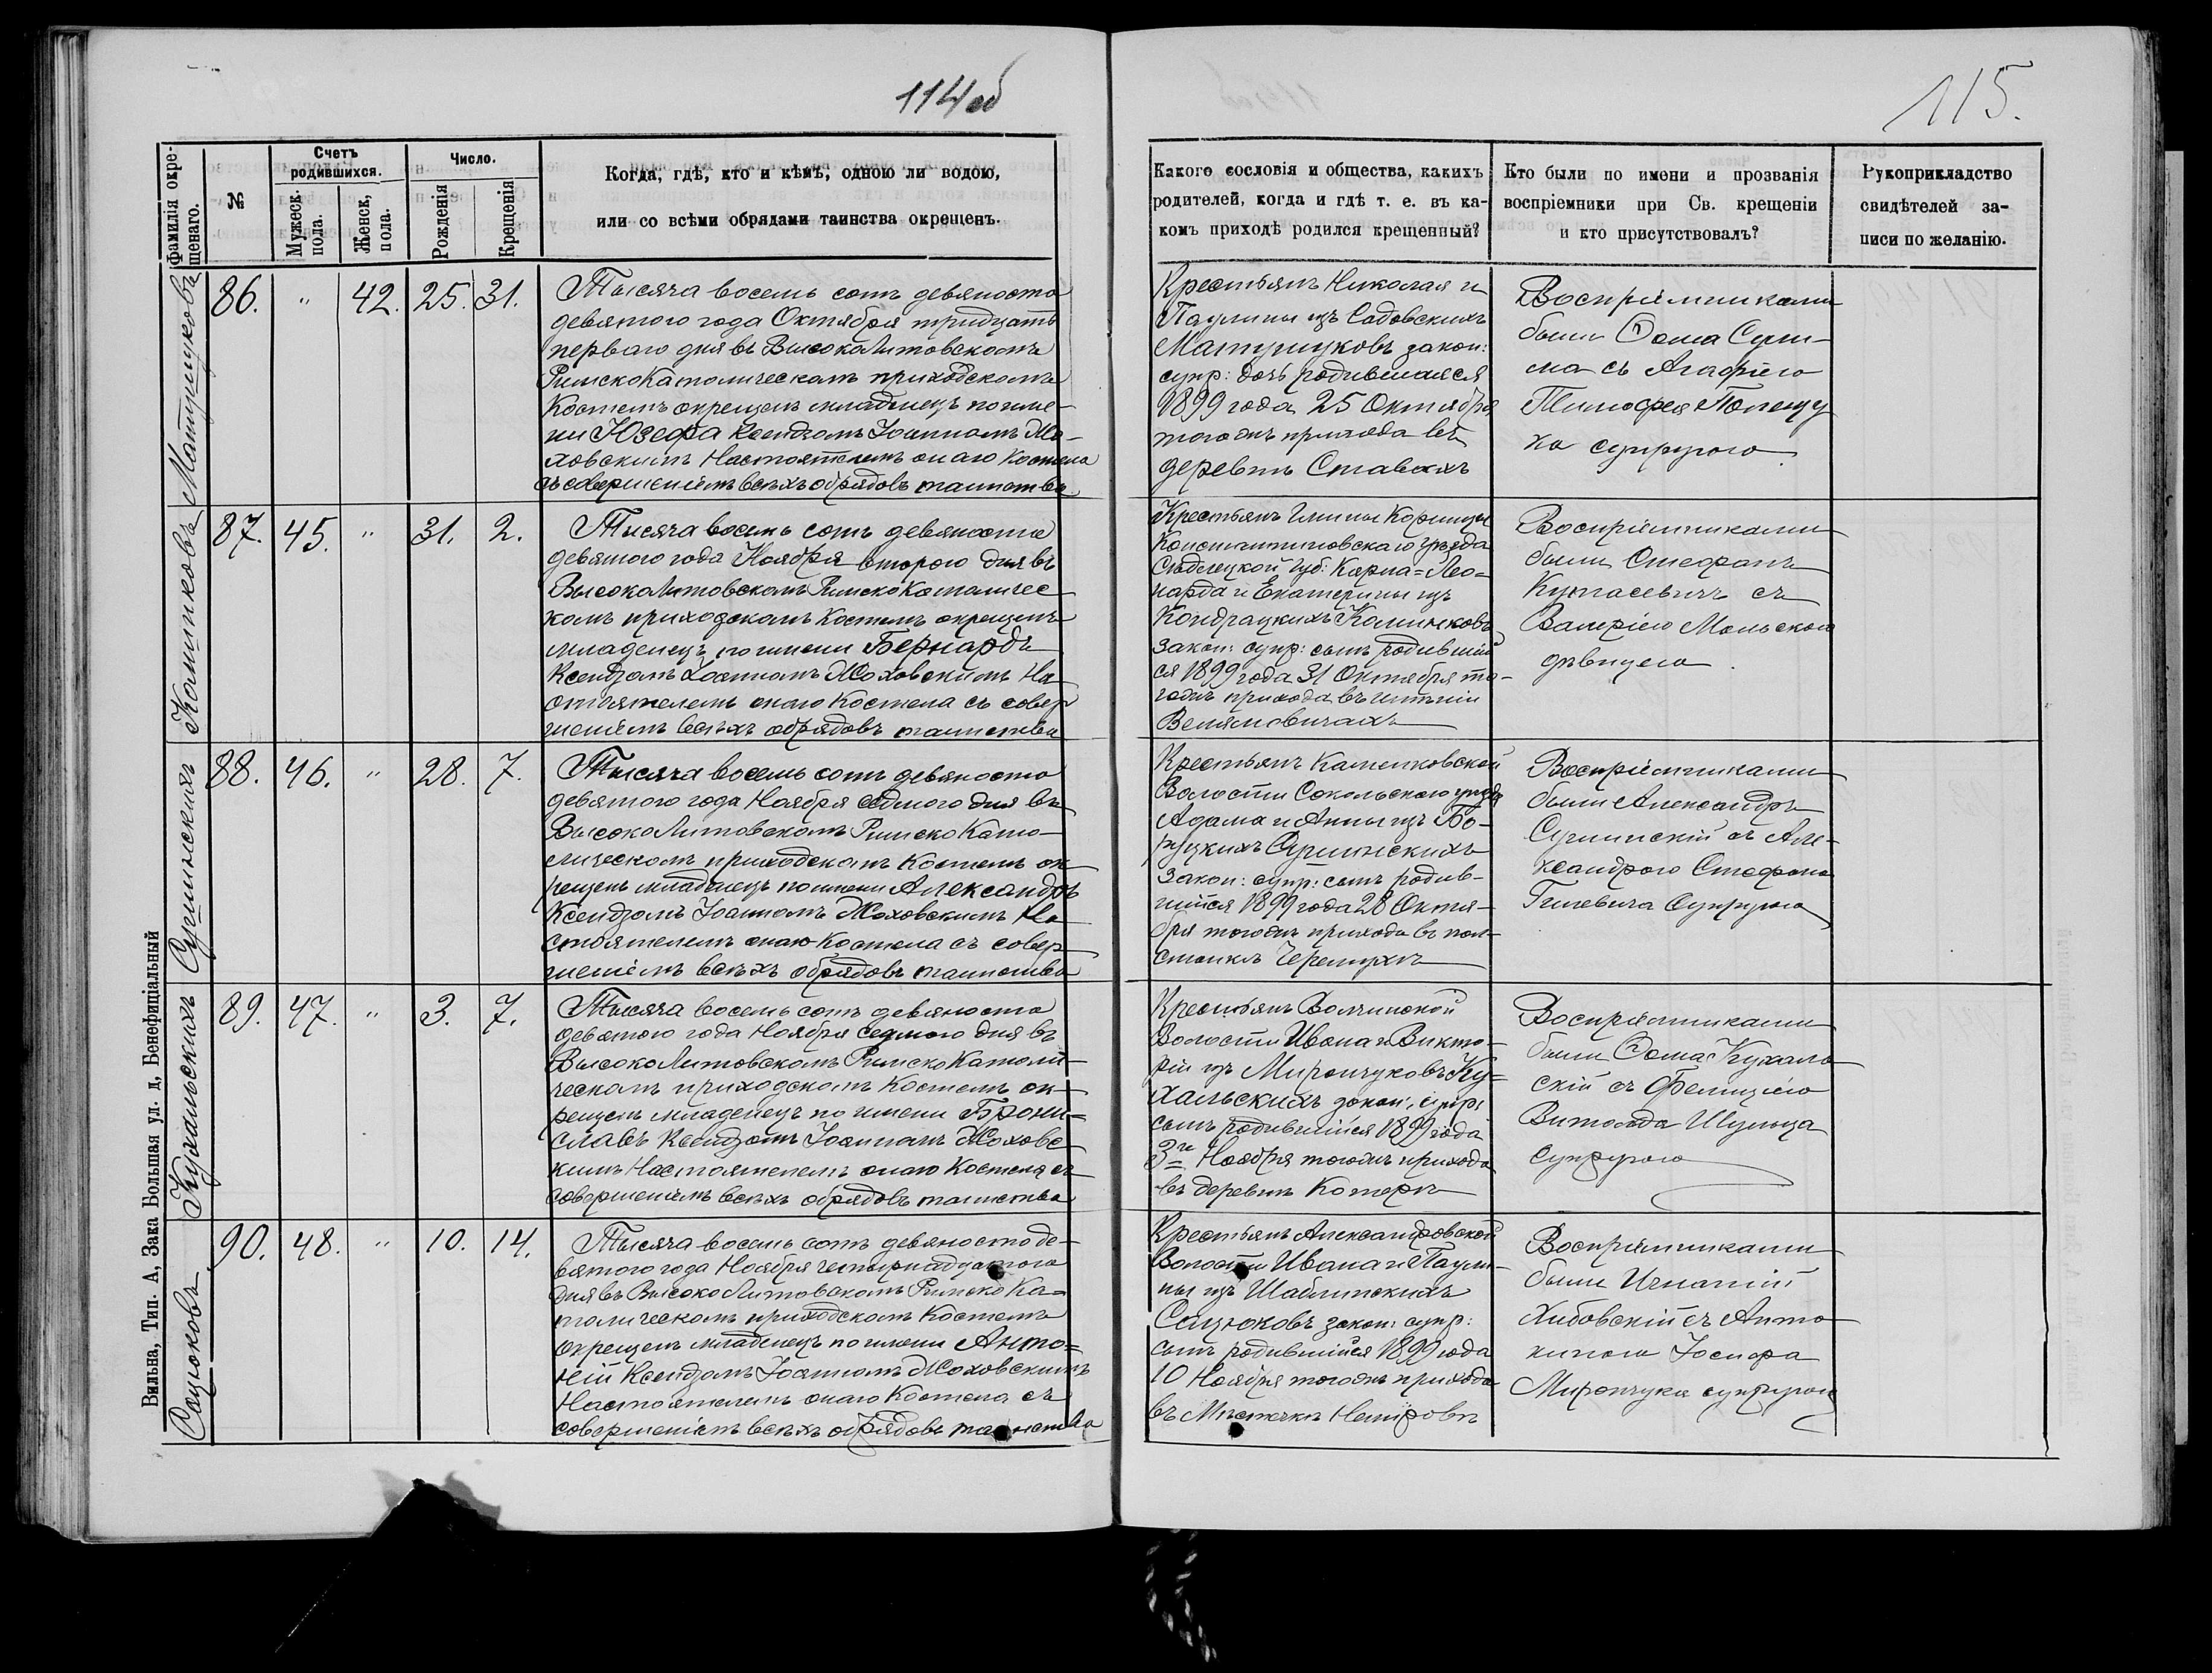 114об
115.
Фамилія окре-
щенаго.
№
Счетъ
родившихся.
Мужеск.
пола.
Женск,
пола.
Число.
Рожденія
Крещенія
Когда, гдѣ, кто и кѣмъ, одною ли водою,
или со всѣми обрядами таинства окрещенъ.
Какого сословія и общества, какихъ
родителей, когда и гдѣ т. е. въ ка-
комъ приходѣ родился крещенный?
Кто были по имени и прозванія
воспріемники при Св. крещеніи
и кто присутствовалъ?
Рукоприкладство
свидѣтелей за-
писи по желанію.
Матушуковъ
86. " 42. 25. 31.
Тысяча восемь сотъ девяносто
девятого года Октября тридцать
первого дня въ ВысокоЛитовскомъ
РимскоКатолическомъ приходскомъ
Костелѣ окрещенъ младенецъ по име-
ни Юзефа Ксендзомъ Іоанномъ Жо-
ховскимъ Настоятелемъ онаго Костела
съ совершеніемъ всѣхъ обрядовъ таинства
Крестьянъ Николая и
Паулины изъ Садовскихъ
Матушуковъ закон:
супр: дочь родившаяся
1899 года 25 Октября
тогожъ прихода въ
деревнѣ Ставахъ
Воспріемниками
были Ѳома Сули-
ма съ Агафіею
Тимофея Попещу
ка супругою.
Каминковъ
87. 45. " 31. 2.
Тысяча восемь сотъ девяносто
девятого года Ноября второго дня въ
ВысокоЛитовскомъ РимскоКатоличес
комъ приходскомъ Костелѣ окрещенъ
младенецъ по имени Бернардъ
Ксендзомъ Іоанномъ Жоховскимъ На
стоятелемъ онаго Костела съ совер
шеніемъ всѣхъ обрядовъ таинства
Крестьянъ Гмины Корницы
Константиновскаго уѣзда
Сѣдлецкой губ: Карла=Лео=
нарда и Екатерины изъ
Кондрацкихъ Каминковъ
закон: супр: сынъ родивший
ся 1899 года 31 Октября то-
гожъ прихода въ имѣніи
Велямовичахъ
Воспріемниками
были Стефанъ
съ
Валеріею Мольскою
дѣвицею.
Сушинскихъ
88. 46. " 28. 7.
Тысяча восемь сотъ девяносто
девятого года Ноября седмого дня въ
ВысокоЛитовскомъ РимскоКато-
лическомъ приходскомъ Костелѣ ок
рещенъ младенецъ по имени Александръ
Ксендзомъ Іоанномъ Жоховскимъ На
стоятелемъ онаго Костела съ совер
шеніемъ всѣхъ обрядовъ таинства
Крестьянъ Каменковской
Волости Сокольскаго уѣзда
Адама и Анны изъ Бо-
руцкихъ Сушинскихъ
закон: супр: сынъ родив-
шійся 1899 года 28 Октя-
бря тогожъ прихода въ пол-
станкѣ Черемухѣ
Воспріемниками
были Александръ
Сушинскій съ Але-
ксандрою Стефана
Гилевича Супругою
Кухальскихъ
89. 47. " 3. 7.
Тысяча восемь сотъ девяносто
девятого года Ноября седмого дня въ
ВысокоЛитовскомъ РимскоКатоли
ческомъ приходскомъ Костелѣ ок
рещенъ младенецъ по имени Брони=
славъ Ксендзомъ Іоанномъ Жоховс
кимъ Настоятелемъ онаго Костела съ
совершеніемъ всѣхъ обрядовъ таинства
Крестьянъ Волчинской
Волости Ивана и Викто-
ріи изъ Мирончуковъ Ку=
хальскихъ закон: супр:
сынъ родившійся 1899 года
3го Ноября тогожъ прихода
въ деревнѣ Котерѣ
Воспріемниками
были Ѳома Кухаль
скій съ Фелиціею
Витольда Шульца
супругою
Сацюковъ
90. 48. " 10. 14.
Тысяча восемь сотъ девяносто де-
вятого года Ноября четырнадцатого
дня въ ВысокоЛитовскомъ РимскоКа=
толическомъ приходскомъ Костелѣ
окрещенъ младенецъ по имени Анто=
ній Ксендзомъ Іоанномъ Жоховскимъ
Настоятелемъ онаго Костела съ
совершеніемъ всѣхъ обрядовъ таинства
Крестьянъ Александровской
Волости Ивана и Паули-
ны изъ Шаблинскихъ
Сацюковъ закон: супр:
сынъ родившійся 1899 года
10 Ноября тогожъ прихода
въ Мѣстечкѣ Немировѣ
Воспріемниками
были Игнатій
Хибовскій съ Анто
ниною Іосифа
Мирончука супругою
Вильна, Тип. А, Зака Большая ул. д, Бенефиціальный